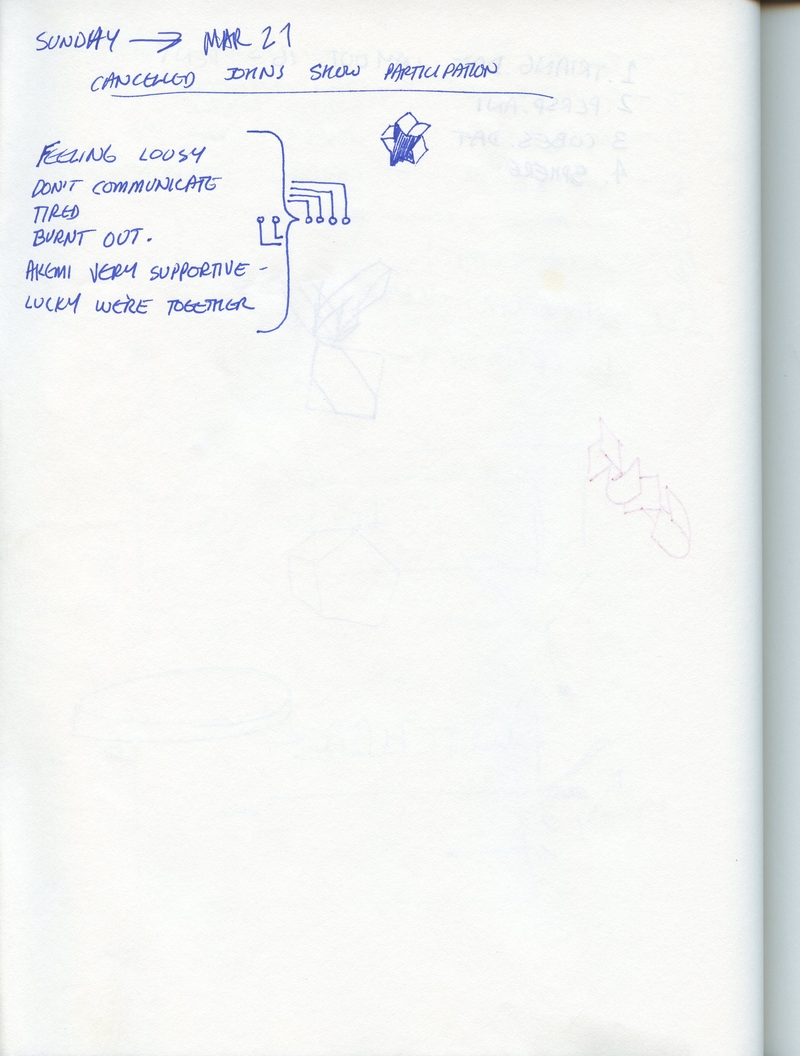 SUNDAY → MAR 21
CANCELLED JOHNS SHOW PARTICIPATION
FEELING LOUSY
DON'T COMMUNICATE
TIRED
BURNT OUT.
AKEMI VERY SUPPORTIVE -
LUCKY WE'RE TOGETHER